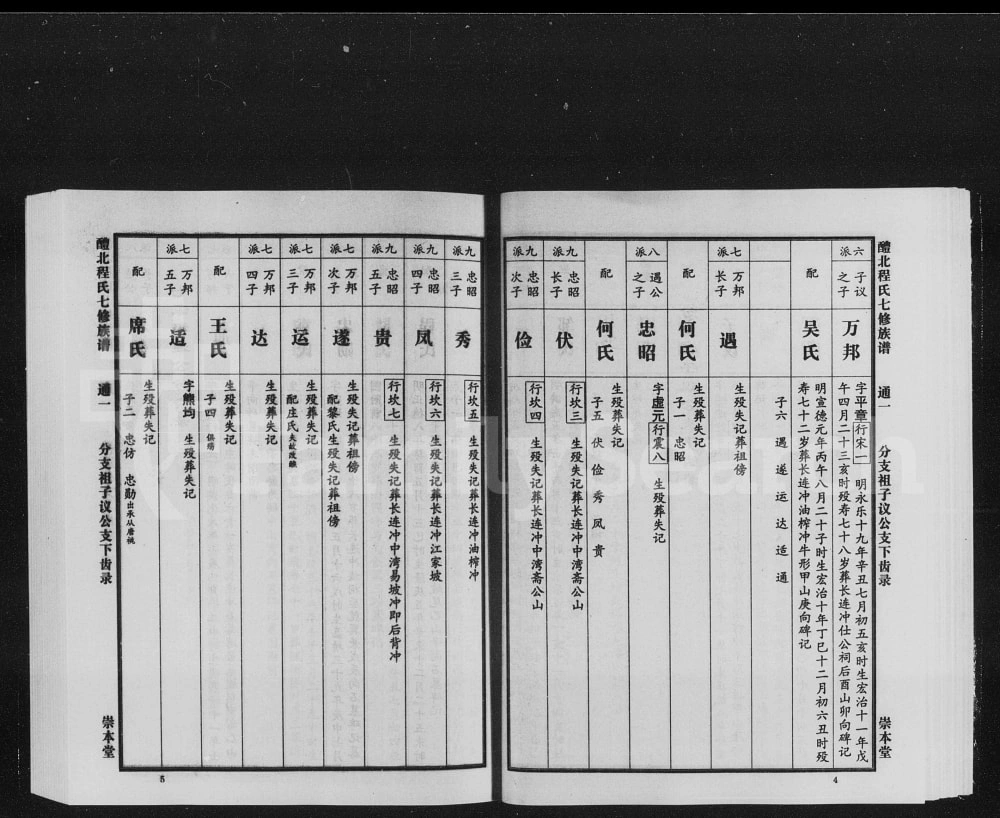 醴北程氏七修族谱
通一
分支祖子议公支下齿录
崇本堂
六派
子议之子
万邦
字平章行宋一 明永乐十九年辛丑七月初五亥时生宏治十一年戊
午四月二十三亥时殁寿七十八岁葬长连冲仕公祠后酉山卯向碑记
配
吴氏
明宣德元年丙午八月二十子时生宏治十年丁巳十二月初六丑时殁
寿七十二岁葬长连冲油榨冲牛形甲山庚向碑记
子六 遇 遂 运 达 适 通
七派
万邦长子
遇
生殁失记葬祖傍
配
何氏
生殁葬失记
子一 忠昭
八派
遇公之子
忠昭
字虚元行震八 生殁葬失记
配
何氏
生殁葬失记
子五 伏 俭 秀 凤 贵
九派
忠昭长子
伏
行坎三 生殁失记葬长连冲中湾斋公山
九派
忠昭次子
俭
行坎四 生殁失记葬长连冲中湾斋公山
4
九派
忠昭三子
秀
行坎五 生殁失记葬长连冲油榨冲
九派
忠昭四子
凤
行坎六 生殁失记葬长连冲江家坡
九派
忠昭五子
贵
行坎七 生殁失记葬长连冲中湾易坡冲即后背冲
七派
万邦次子
遂
生殁失记葬祖傍
配黎氏生殁失记葬祖傍
七派
万邦三子
运
生殁葬失记
配庄氏夫故改醮
七派
万邦四子
达
生殁葬失记
配
王氏
生殁葬失记
子四 俱殇
七派
万邦五子
适
字熊均 生殁葬失记
配
席氏
生殁葬失记
子二 忠仿 忠勋出承从唐桃
醴北程氏七修族谱
通一
分支祖子议公支下齿录
崇本堂
5